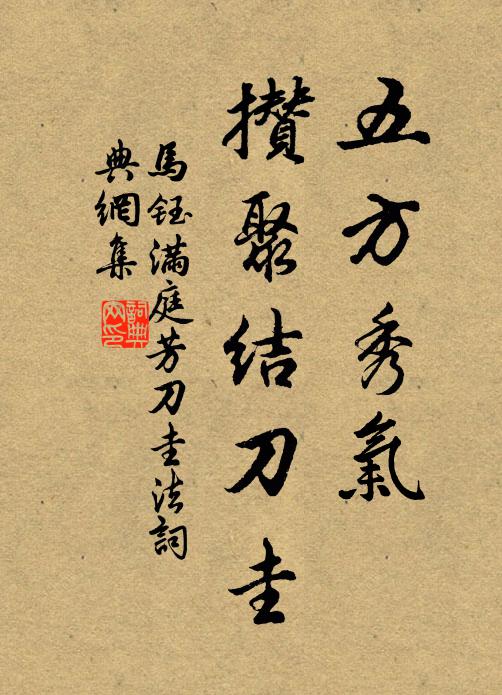 五方秀氣
攢聚結刀圭
馬鈺滿庭芳刀圭法詞
典網集
詞典
网印